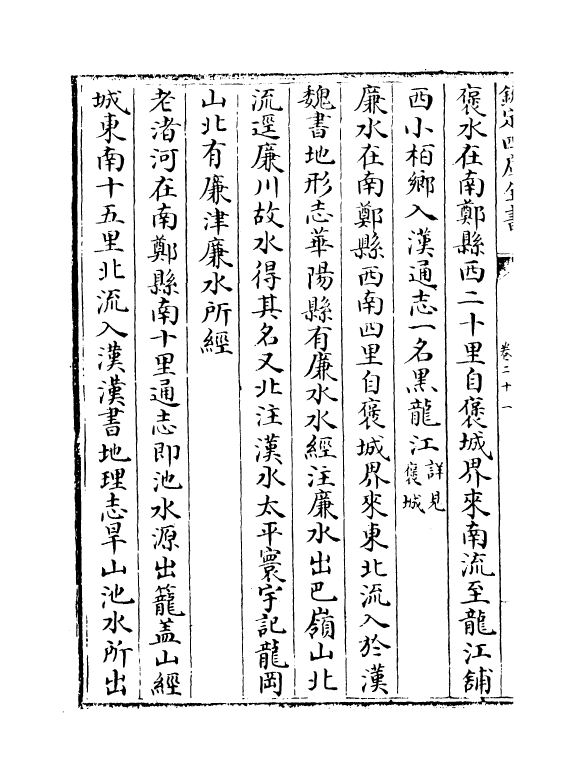 欽定四庫全書
卷二十一
褒水在南鄭縣西二十里自褒城界來南流至龍江舖
西小柏鄉入漢通志一名黑龍江詳見褒城
廉水在南鄭縣西南四里自褒城界來東北流入於漢
魏書地形志華陽縣有廉水水經注廉水出巴嶺山北
流逕廉川故水得其名又北注漢水太平寰宇記龍岡
山北有廉津廉水所經
老渚河在南鄭縣南十里通志即池水源出籠盖山經
城東南十五里北流入漢漢書地理志旱山池水所出